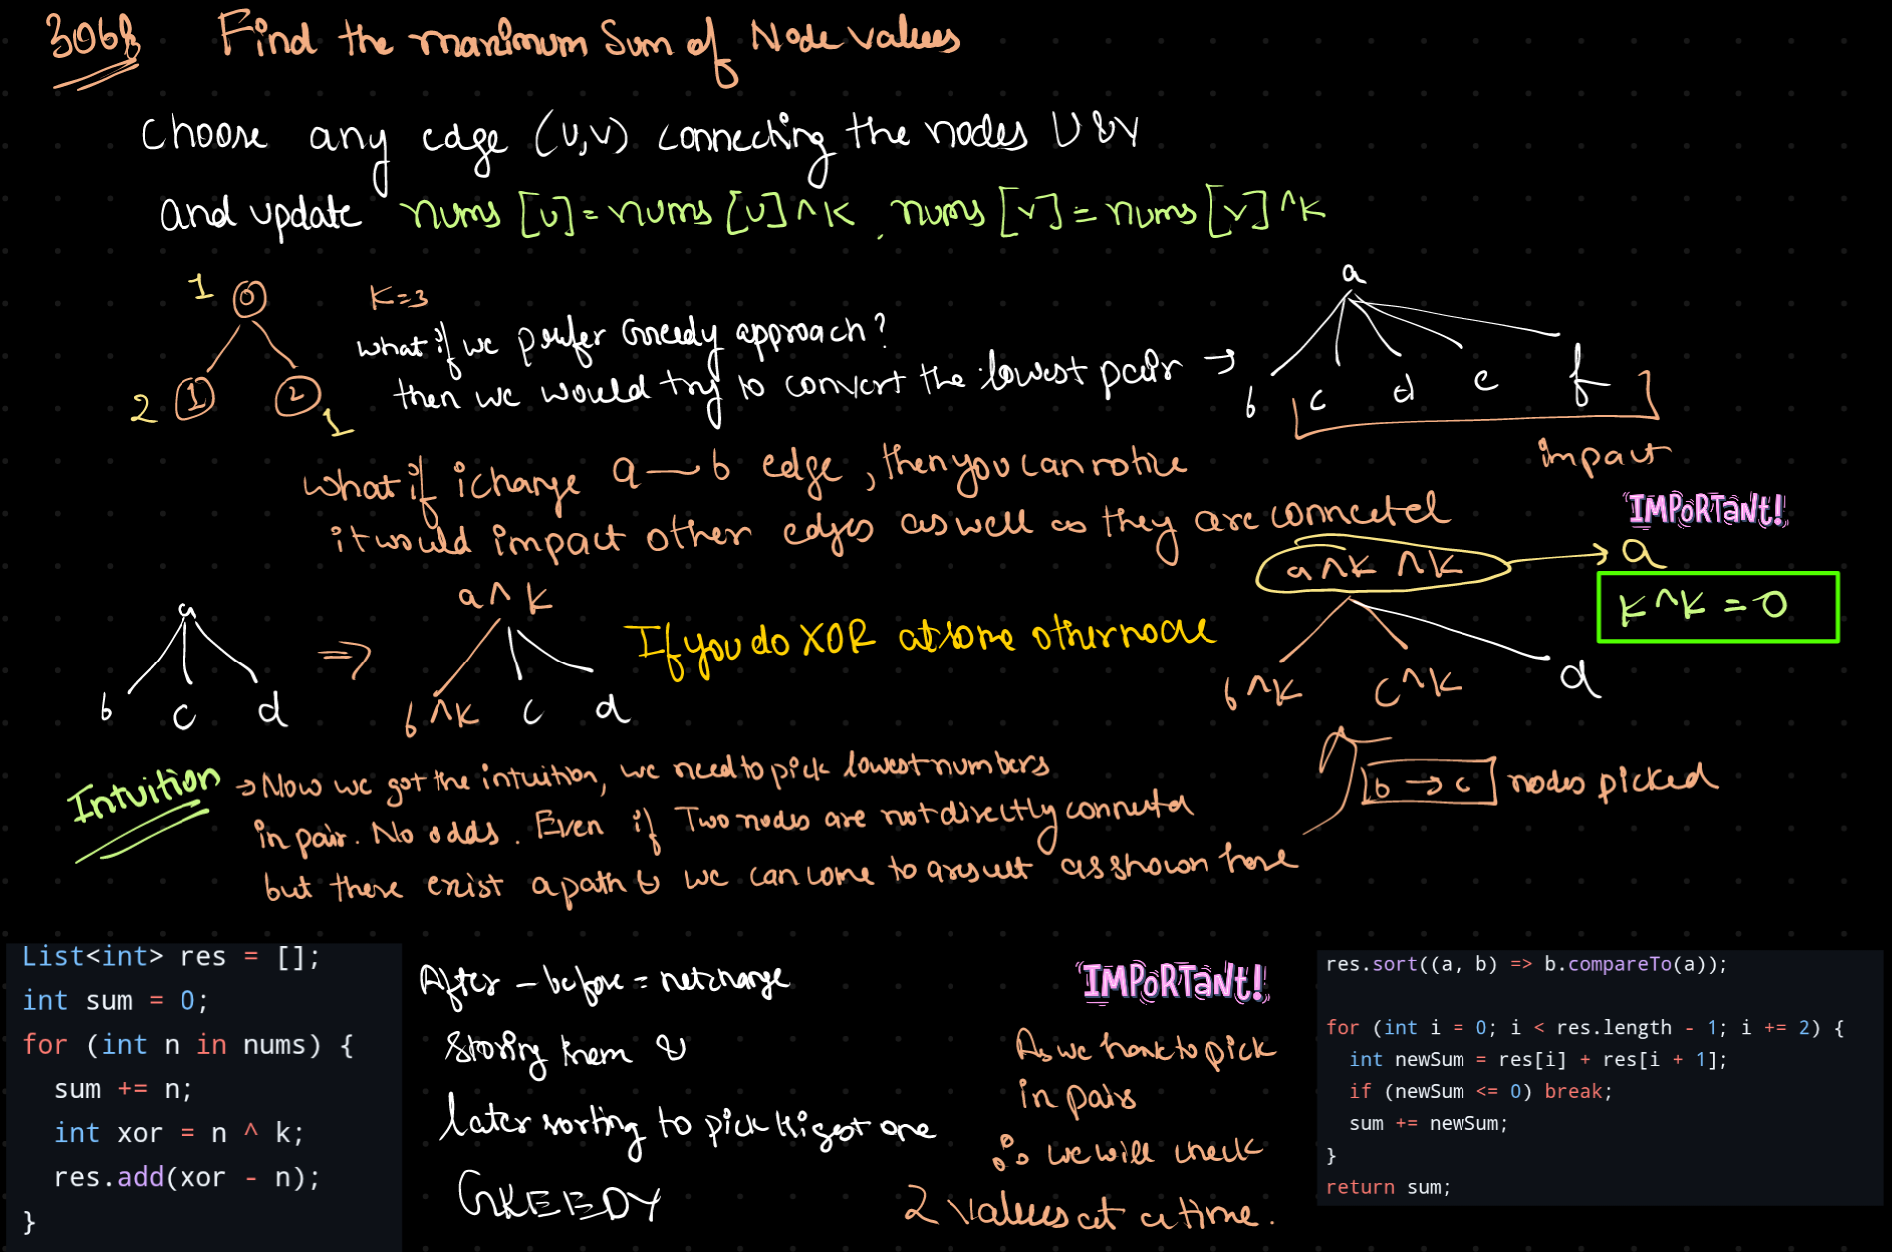 3068 Find the maximum Sum of Node values
Choose any edge (U,V) connecting the nodes U & V
and update nums[u]=nums[u]^K, nums[v]=nums[v]^K
1 0
K=3
a
what if we prefer Greedy approach?
then we would try to convert the lowest pair →
2 1 2 1
b c d e f
impact
what if i change a — b edge, then you can notice
it would impact other edges as well as they are connected
IMPORTANT!
a^k^k → a
k^k=0
a
b c d
⇒
a^k
b^k c d
If you do XOR at some other node
b^k c^k d
b → c nodes picked
Intuition → Now we got the intuition, we need to pick lowest numbers
in pair. No odds. Even if Two nodes are not directly connected
but there exist a path & we can come to a result as shown here
List<int> res = [];
int sum = 0;
for (int n in nums) {
sum += n;
int xor = n ^ k;
res.add(xor - n);
}
After - before = net change
Storing them &
later sorting to pick Higest one
GREEDY
IMPORTANT!
As we have to pick
in pairs
∴ we will check
2 values at a time.
res.sort((a, b) => b.compareTo(a));
for (int i = 0; i < res.length - 1; i += 2) {
int newSum = res[i] + res[i + 1];
if (newSum <= 0) break;
sum += newSum;
}
return sum;